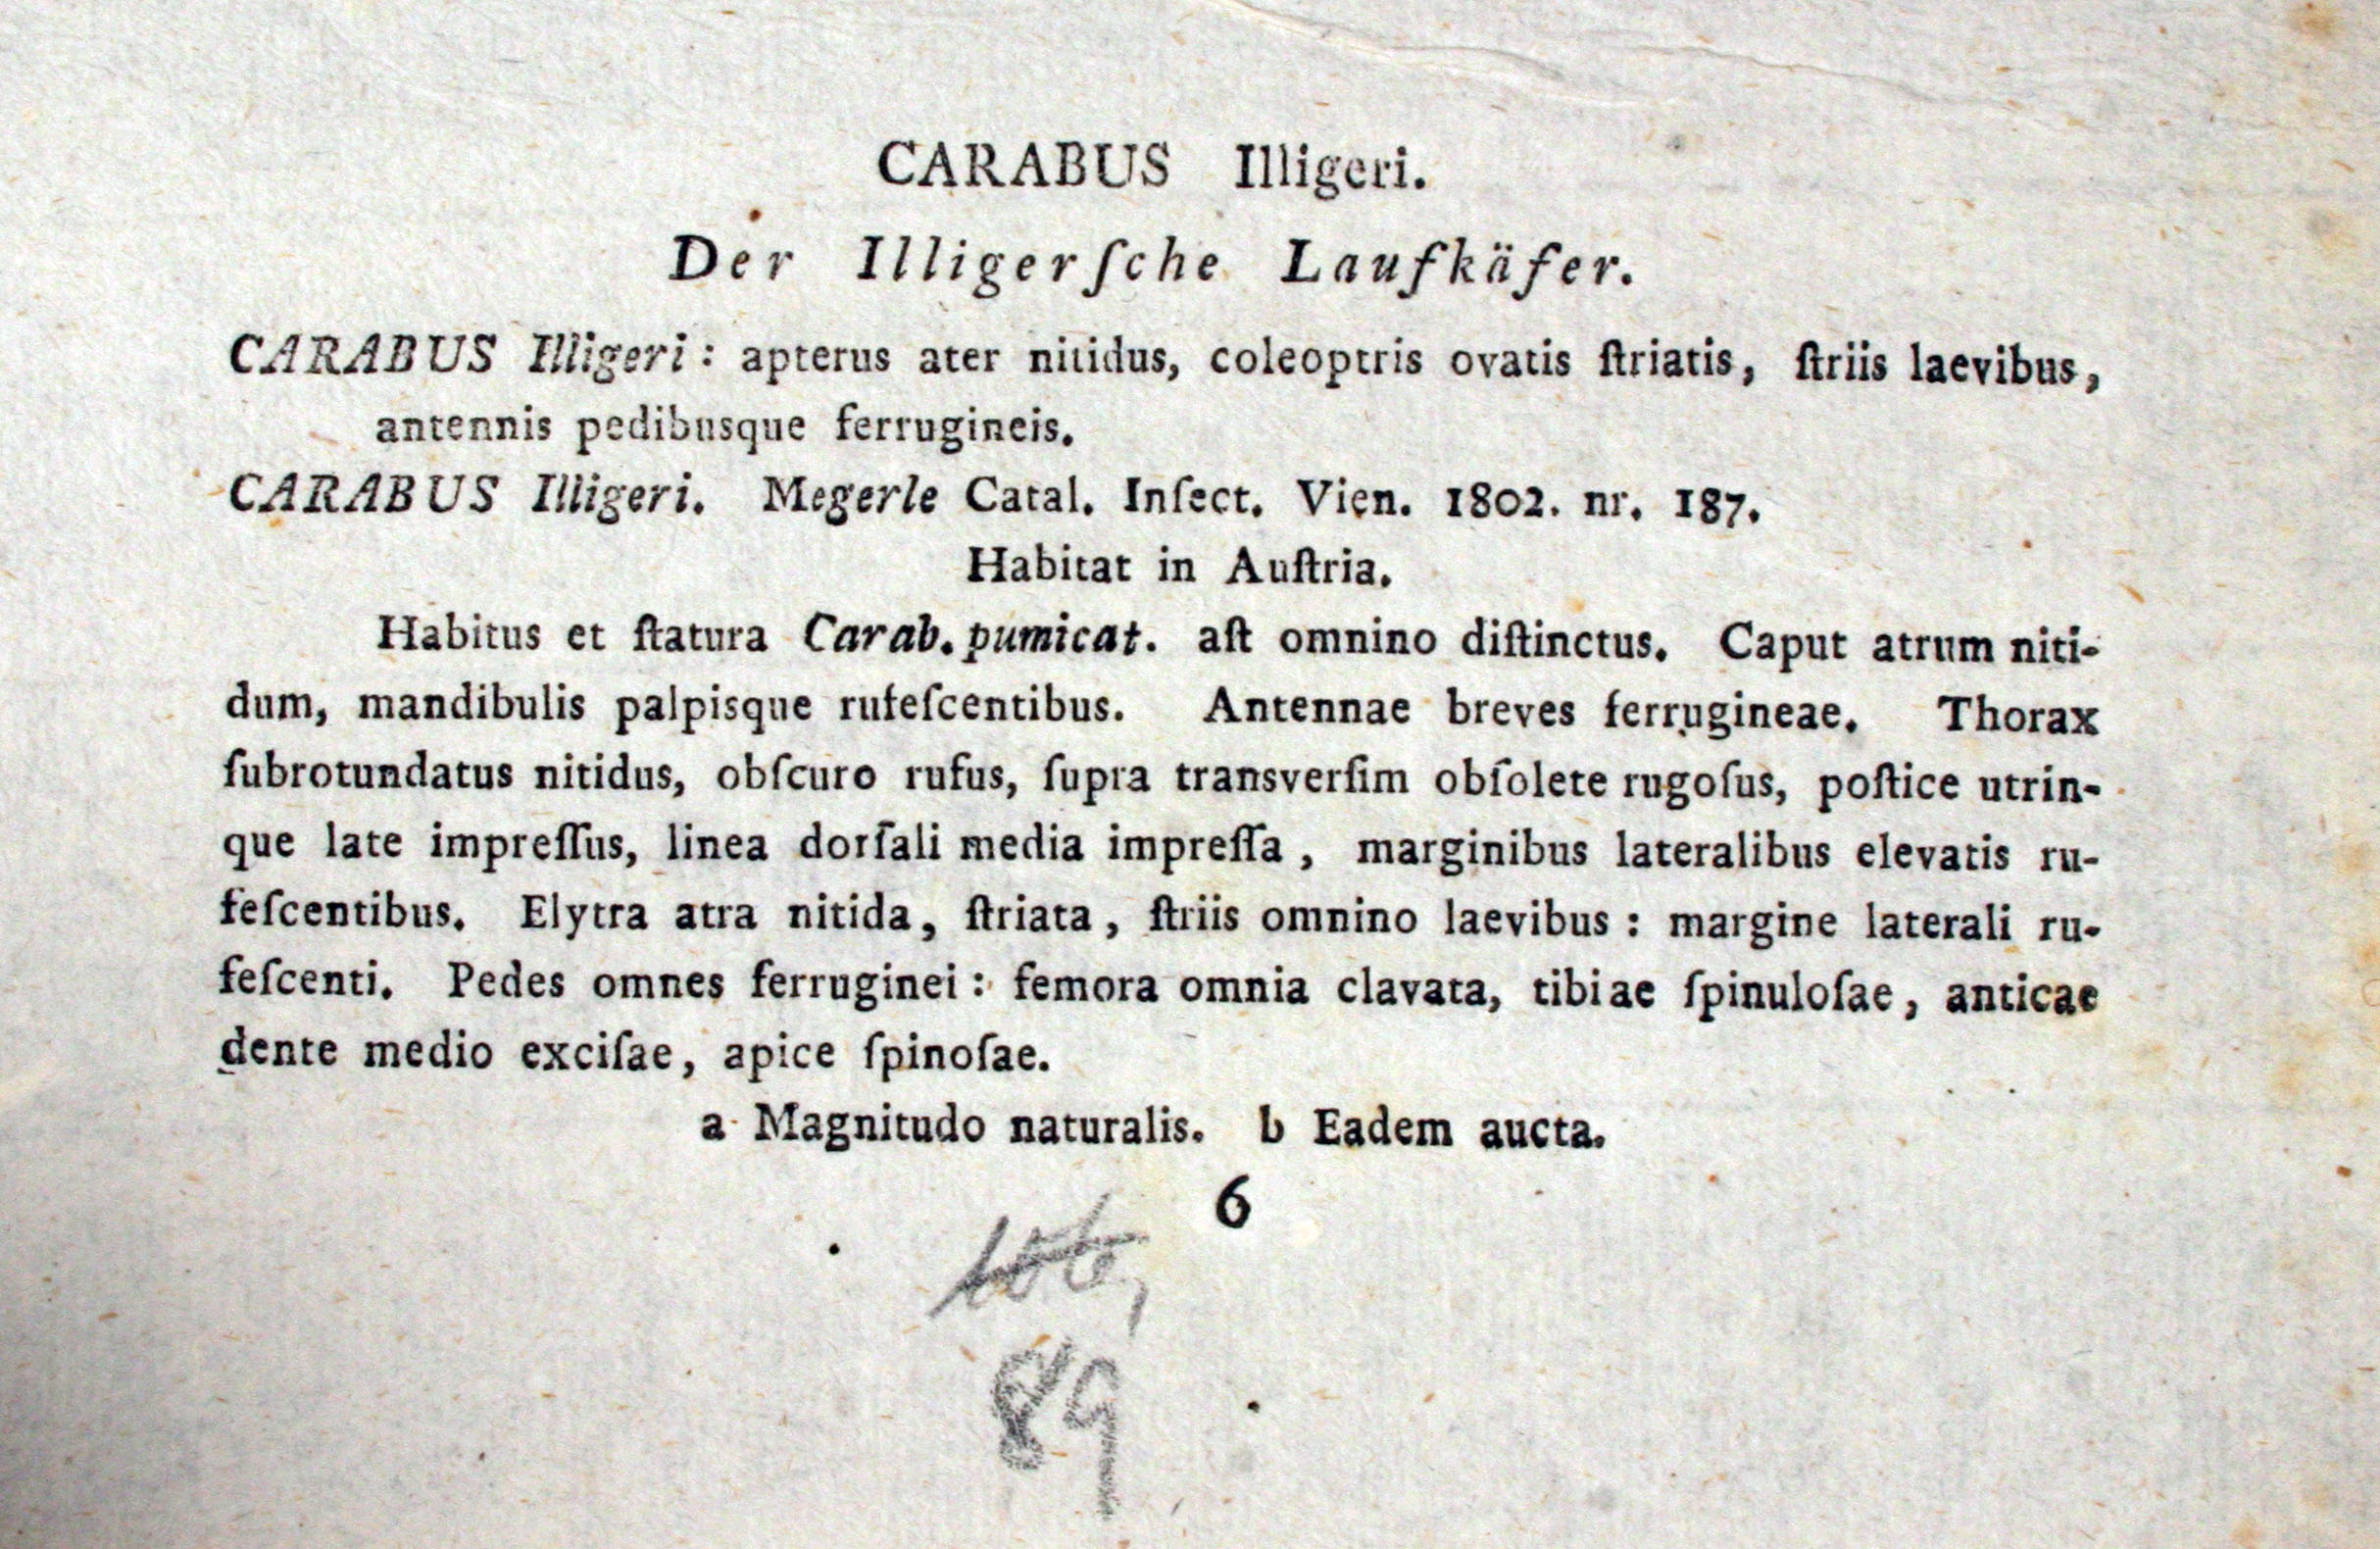 CARABUS Illigeri.
Der Illigerſche Laufkäfer.
CARABUS Illigeri: apterus ater nitidus, coleoptris ovatis ſtriatis, ſtriis laevibus,
antennis pedibusque ferrugineis.
CARABUS Illigeri. Megerle Catal. Inſect. Vien. 1802. nr. 187.
Habitat in Auſtria.
Habitus et ſtatura Carab. pumicat. aſt omnino diſtinctus. Caput atrum niti-
dum, mandibulis palpisque rufeſcentibus. Antennae breves ferrugineae. Thorax
ſubrotundatus nitidus, obſcuro rufus, ſupra transverſim obſolete rugoſus, poſtice utrin-
que late impreſſus, linea dorſali media impreſſa, marginibus lateralibus elevatis ru-
feſcentibus. Elytra atra nitida, ſtriata, ſtriis omnino laevibus: margine laterali ru-
feſcenti. Pedes omnes ferruginei: femora omnia clavata, tibiae ſpinuloſae, anticae
dente medio exciſae, apice ſpinoſae.
a Magnitudo naturalis. b Eadem aucta.
6
89